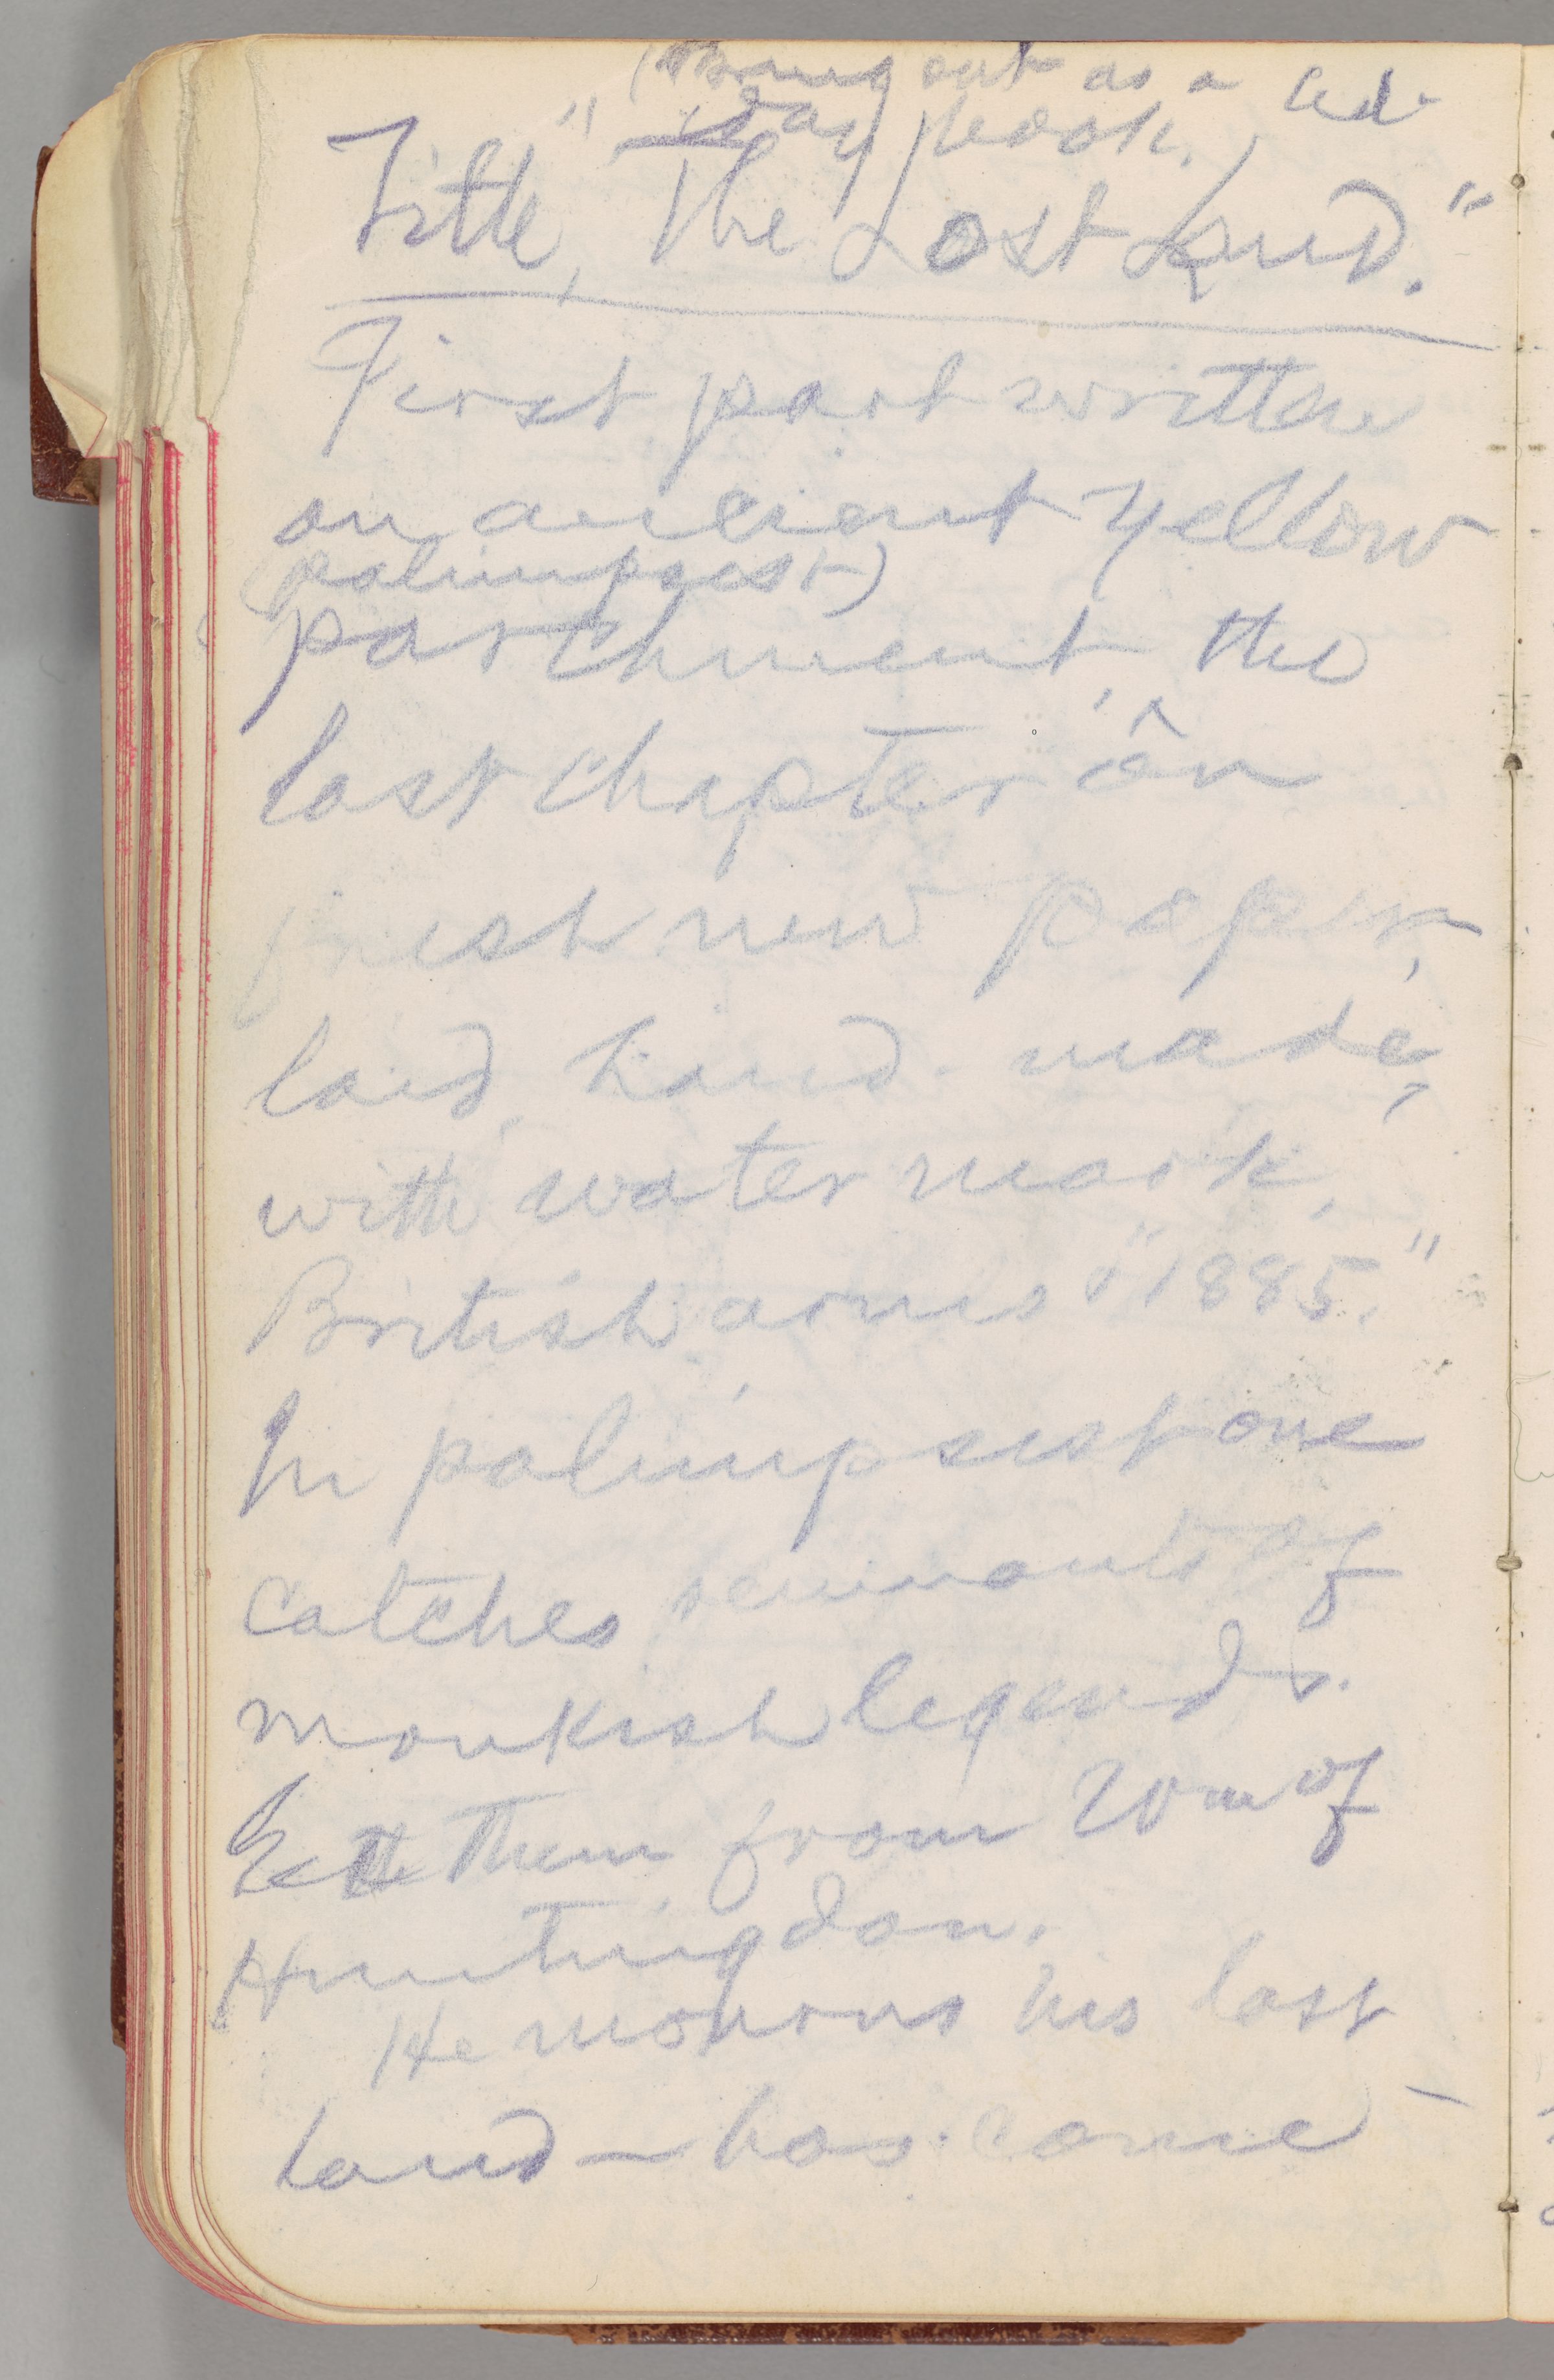 (Bring out as a holi-
day book.)
Title, "The Lost Land."
First part written
on ancient yellow
(palimpsest)
parchment, the
last chapter on
fresh new paper,
laid, hand-made,
with watermark,
British arms & "1885."
In palimpsest one
catches remnants of
monkish legends.
Get them from Wm of
Huntingdon.
He mourns his lost
land — has come